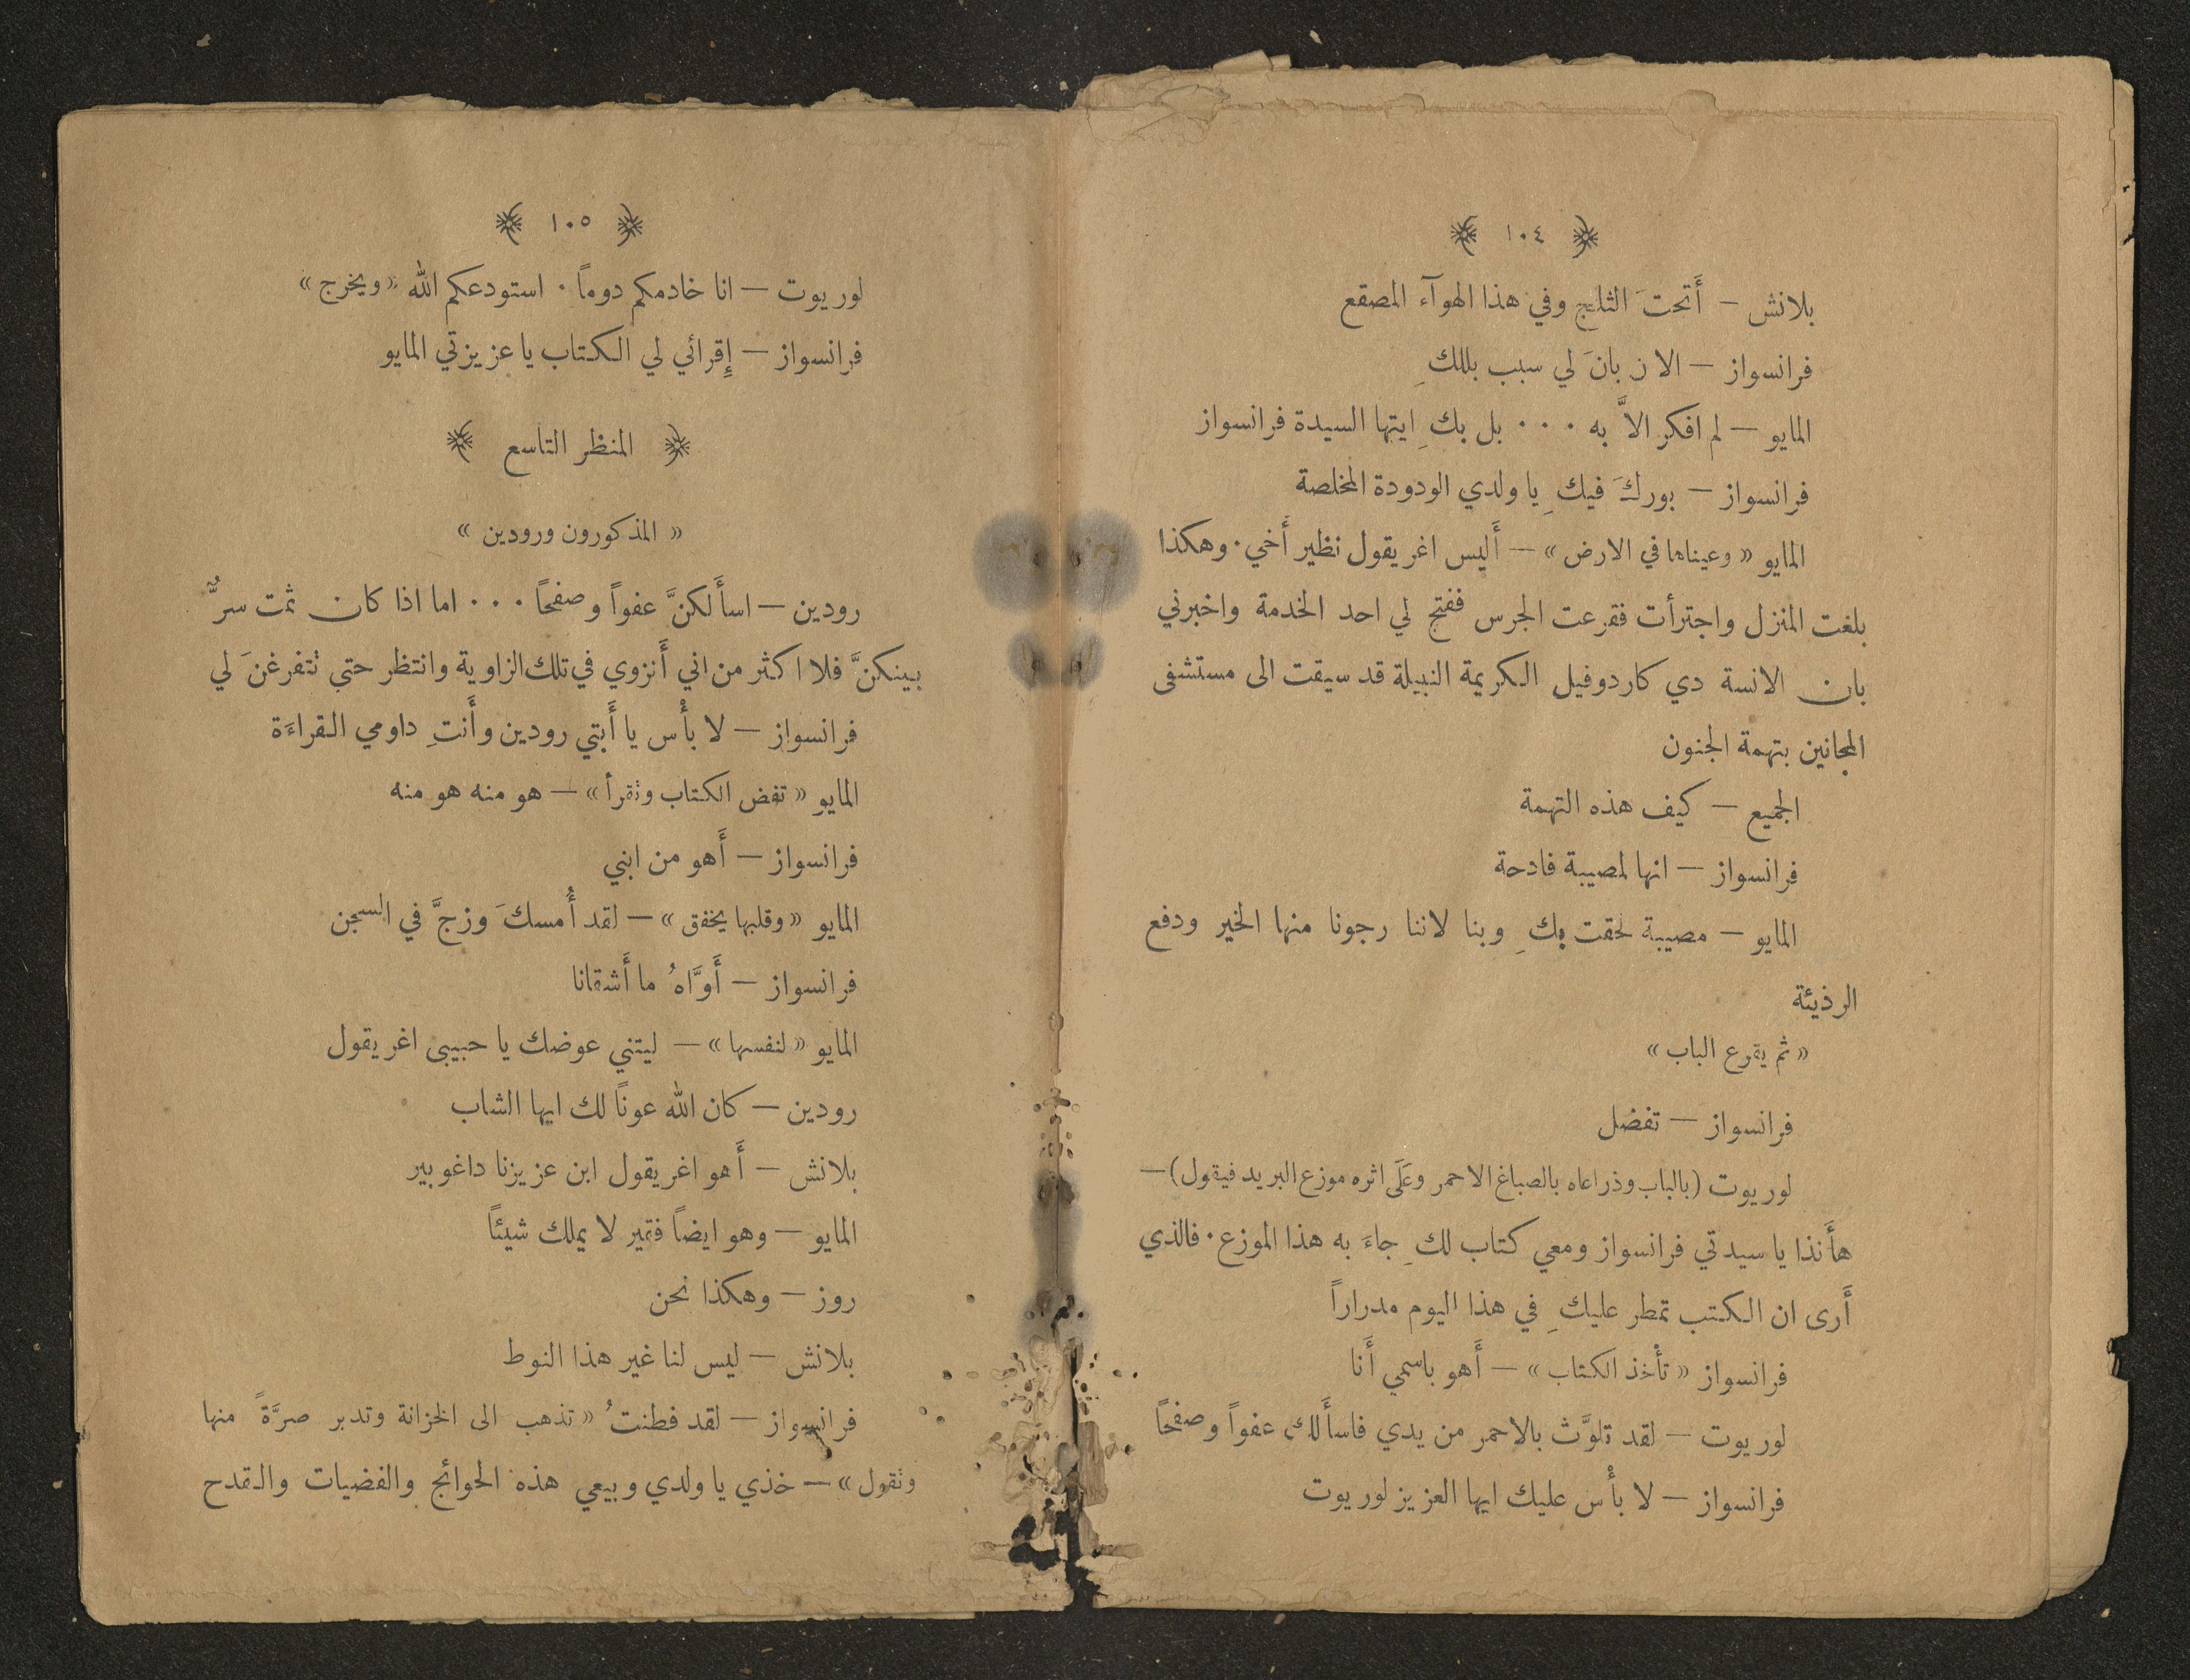 ﴿ ١٠٤ ﴾
بلانش — أَتحتَ الثلج وفي هذا الهوآء المصقع
فرانسواز — الان بانَ لي سبب بللكِ
المايو — لم افكر الاَّ به ٠٠٠ بل بكِ ايتها السيدة فرانسواز
فرانسواز — بوركَ فيكِ يا ولدي الودودة المخلصة
المايو « وعيناها في الارض » — أَليس اغريقول نظير أَخي ٠ وهكذا
بلغت المنزل واجترأت فقرعت الجرس ففتح لي احد الخدمة واخبرني
بان الانسة دي كاردوفيل الكريمة النبيلة قد سيقت الى مستشفى
المجانين بتهمة الجنون
الجميع — كيف هذه التهمة
فرانسواز — انها لمصيبة فادحة
المايو — مصيبة لحقت بكِ وبنا لاننا رجونا منها الخير ودفع
الرذيئة
« ثم يقرع الباب »
فرانسواز — تفضل
لوريوت (بالباب وذراعاه بالصباغ الاحمر وعَلَى اثره موزع البريد فيقول) —
هأَنذا يا سيدتي فرانسواز ومعي كتاب لكِ جاءَ به هذا الموزع ٠ فالذي
أَرى ان الكتب تمطر عليكِ في هذا اليوم مدراراً
فرانسواز « تأْخذ الكتاب » — أَهو باسمي أَنا
لوريوت — لقد تلوَّث بالاحمر من يدي فاسأَلك عفواً وصفحاً
فرانسواز — لا بأْس عليك ايها العزيز لوريوت
﴿ ١٠٥ ﴾
لوريوت — انا خادمكم دوماً ٠ استودعكم الله « ويخرج »
فرانسواز — إِقرائي لي الكتاب يا عزيزتي المايو
﴿ المنظر التاسع ﴾
« المذكورون ورودين »
رودين — اسأَلكنَّ عفواً وصفحاً ٠٠٠ اما اذا كان ثمت سرٌّ
بينكنَّ فلا اكثر من اني أَنزوي في تلك الزاوية وانتظر حتي تتفرغنَ لي
فرانسواز — لا بأْس يا أَبتي رودين وأَنتِ داومي القراءَة
المايو « تفض الكتاب وتقرأ » — هو منه هو منه
فرانسواز — أَهو من ابني
المايو « وقلبها يخفق » — لقد أُمسكَ وزجَّ في السجن
فرانسواز — أَوَّاهُ ما أَشقانا
المايو « لنفسها » — ليتني عوضك يا حبيبى اغريقول
رودين — كان الله عونًا لك ايها الشاب
بلانش — أَهو اغريقول ابن عزيزنا داغوبير
المايو — وهو ايضاً فقير لا يملك شيئاً
روز — وهكذا نحن
بلانش — ليس لنا غير هذا النوط
فرانسواز — لقد فطنتُ « تذهب الى الخزانة وتدبر صرَّةً منها
وتقول » — خذي يا ولدي وبيعي هذه الحوائج والفضيات والقدح